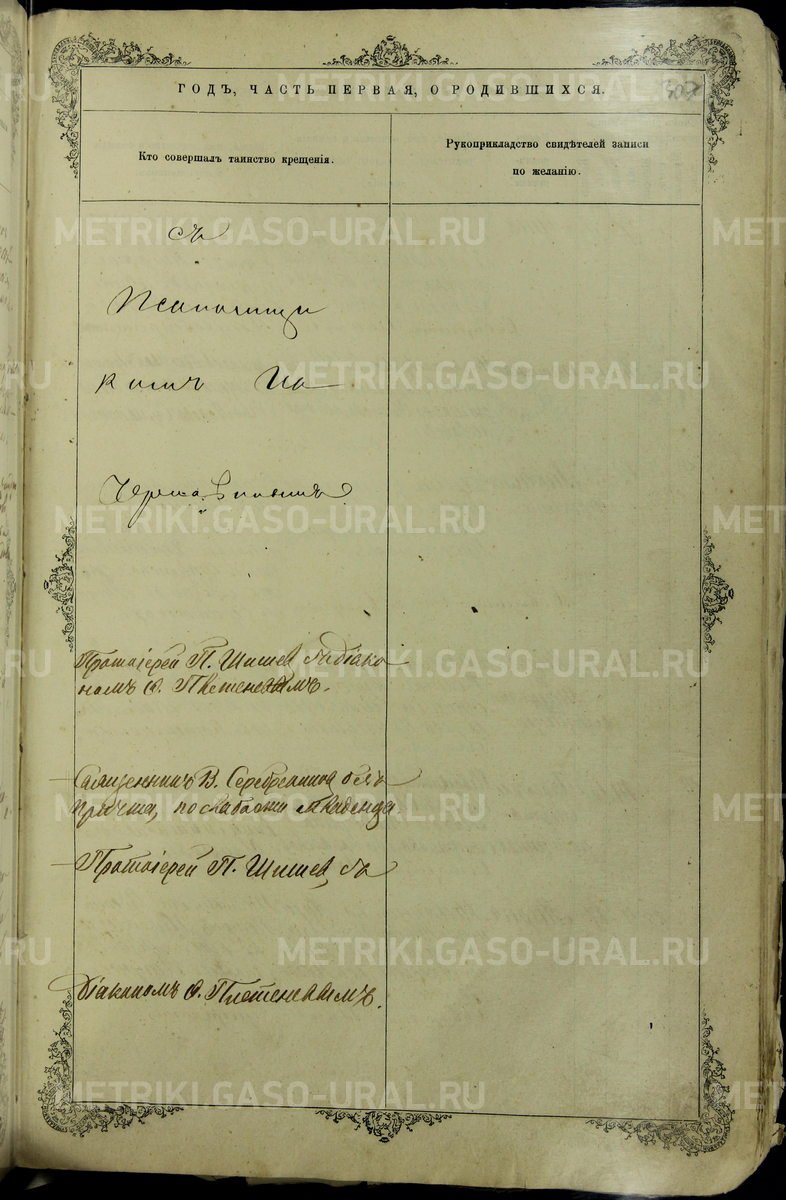 307
ГОДЪ, ЧАСТЬ ПЕРВАЯ, О РОДИВШИХСЯ.
Кто совершалъ таинство крещенія.
Рукоприкладство свидѣтелей записи
по желанію.
съ
Псаломщи
комъ
Протоіерей П. Шишев съ діако
номъ
Священникъ В. Серебренниковъ безъ
причта, по слабости младенца.
Протоіерей П. Шишев, съ
діакономъ
METRIKI.GASO-URAL.RU